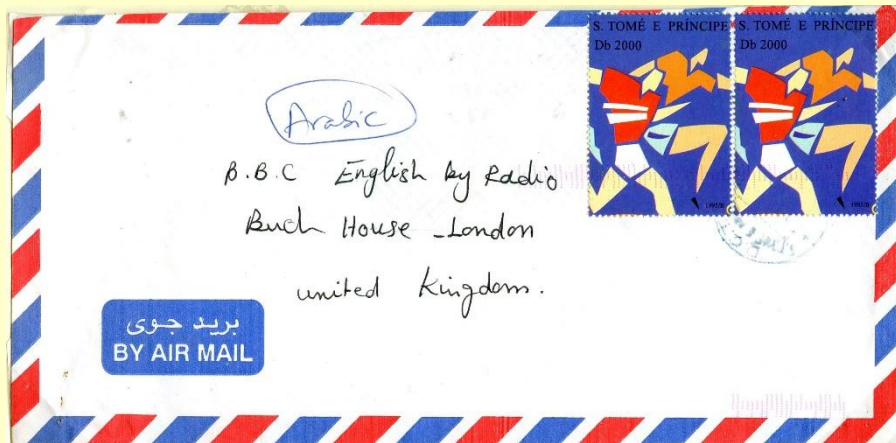 S. TOMÉ E PRÍNCIPE
Db 2000
S. TOMÉ E PRÍNCIPE
Db 2000
1995/B
1995/B
Arabic
B.B.C English by Radio
Buch House - London
united Kingdom.
بريد جوى
BY AIR MAIL